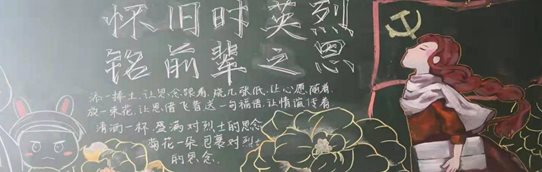 怀旧时英烈
铭前辈之恩
添一捧土,让思念跟着,烧几张纸,让心愿随着,
放一束花,让恩情飞着,送一句福语,让情谊浮着
清酒一杯,盛满对烈士的思念
菊花一朵包裹对烈士
的思念.